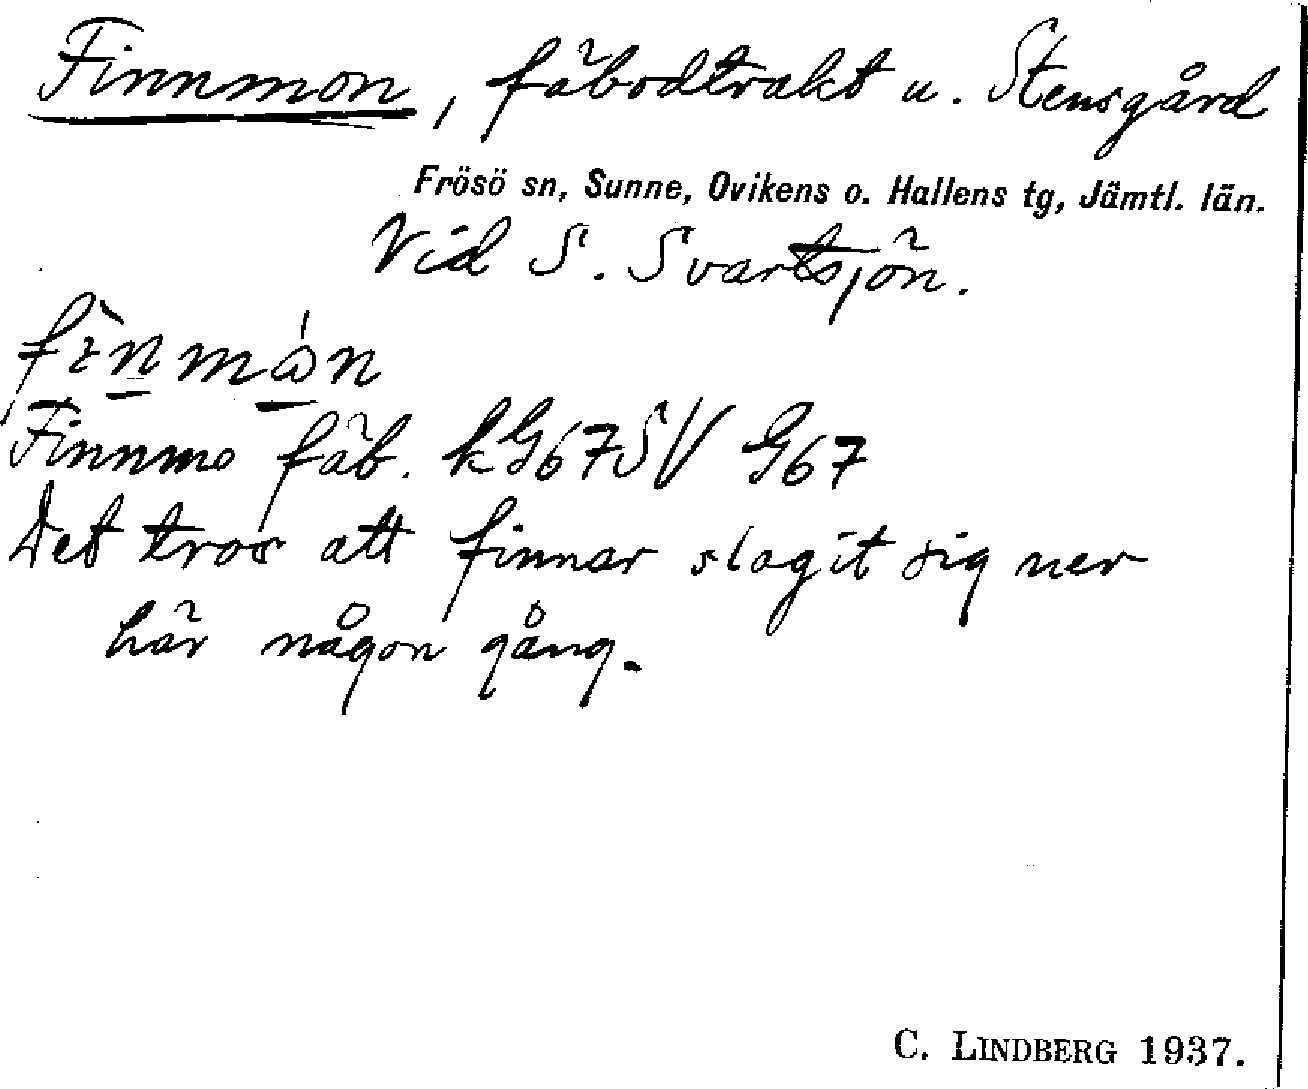 Finnmon, fäbodtrakt u. Stensgård
Frösö sn, Sunne, Ovikens o. Hallens tg, Jämtl. län.
Vid S. Svartsjön.
Finnmo fäb. kG67SV G67
Det tros att finnar slagit sig ner
här någon gång.
C. LINDBERG 1937.